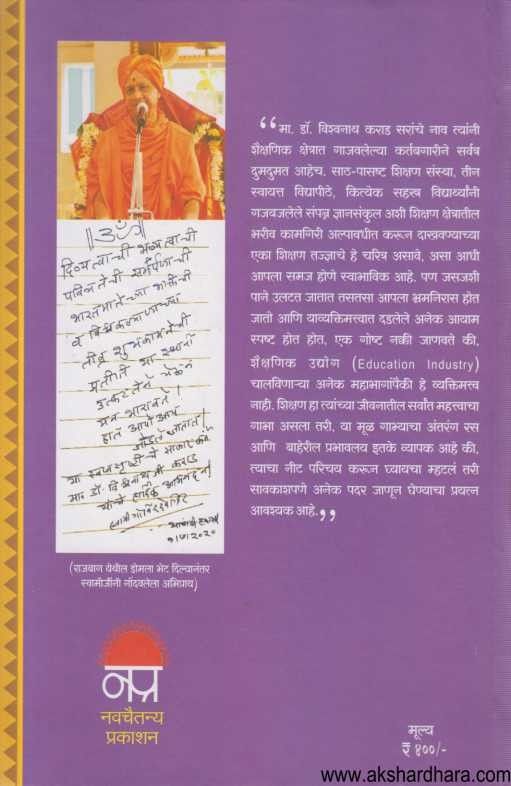 ॥ॐ॥
दिव्यत्वाची भव्यत्वाची
पवित्रतेची समर्पणाची
भारतमातेच्या भक्तीची
व विश्वकल्याणाच्या
तीव्र शुभकामनेची
प्रतीति या स्थानी
उत्कटतेने येऊन
मन भारावते!
हात आपोआप
जोडले जातात!
या स्वप्नसृष्टीचे साकार कर्ते
मा. डॉ. विश्वनाथजी कराड
यांचे हार्दिक अभिनंदन!
स्वामी गोविंददेव गिरि
(राजबाग येथील डोमला भेट दिल्यानंतर
स्वामीजींनी नोंदवलेला अभिप्राय)
“मा. डॉ. विश्वनाथ कराड सरांचे नाव त्यांनी
शैक्षणिक क्षेत्रात गाजवलेल्या कर्तबगारीने सर्वत्र
दुमदुमत आहेच. साठ-पासष्ट शिक्षण संस्था, तीन
स्वायत्त विद्यापीठे, कित्येक सहस्त्र विद्यार्थ्यांनी
गजबजलेले संपन्न ज्ञानसंकुल अशी शिक्षण क्षेत्रातील
भरीव कामगिरी अल्पावधीत करून दाखवण्याच्या
एका शिक्षण तज्ज्ञाचे हे चरित्र असावे, असा आधी
आपला समज होणे स्वाभाविक आहे. पण जसजशी
पाने उलटत जातात तसतसा आपला भ्रमनिरास होत
जातो आणि याव्यक्तिमत्त्वात दडलेले अनेक आयाम
स्पष्ट होत होत, एक गोष्ट नक्की जाणवते की,
शैक्षणिक उद्योग (Education Industry)
चालविणाऱ्या अनेक महाभागांपैकी हे व्यक्तिमत्त्व
नाही. शिक्षण हा त्यांच्या जीवनातील सर्वांत महत्त्वाचा
गाभा असला तरी, या मूळ गाभ्याचा अंतरंग रस
आणि बाहेरील प्रभावलय इतके व्यापक आहे की,
त्याचा नीट परिचय करून घ्यायचा म्हटलं तरी
सावकाशपणे अनेक पदर जाणून घेण्याचा प्रयत्न
आवश्यक आहे.”
नप्र
नवचैतन्य
प्रकाशन
मूल्य
₹ ४००/-
www.akshardhara.com